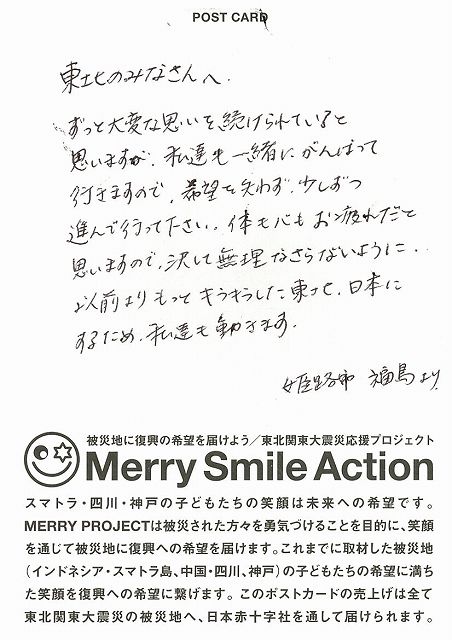 POST CARD
東北のみなさんへ.
ずっと大変な思いを続けられていると
思いますが、私達も一緒にがんばって
行きますので、希望を失わず、少しずつ
進んで行って下さい。体も心もお疲れだと
思いますので、決して無理なさらないように..
以前よりもっとキラキラした東北、日本に
するため、私達も動きます.
姫路市 福島より.
被災地に復興の希望を届けよう／東北関東大震災応援プロジェクト
Merry Smile Action
スマトラ・四川・神戸の子どもたちの笑顔は未来への希望です。
MERRY PROJECTは被災された方々を勇気づけることを目的に、笑顔
を通じて被災地に復興への希望を届けます。これまでに取材した被災地
（インドネシア・スマトラ島、中国・四川、神戸）の子どもたちの希望に満ち
た笑顔を復興への希望に繋げます。このポストカードの売上げは全て
東北関東大震災の被災地へ、日本赤十字社を通して届けられます。